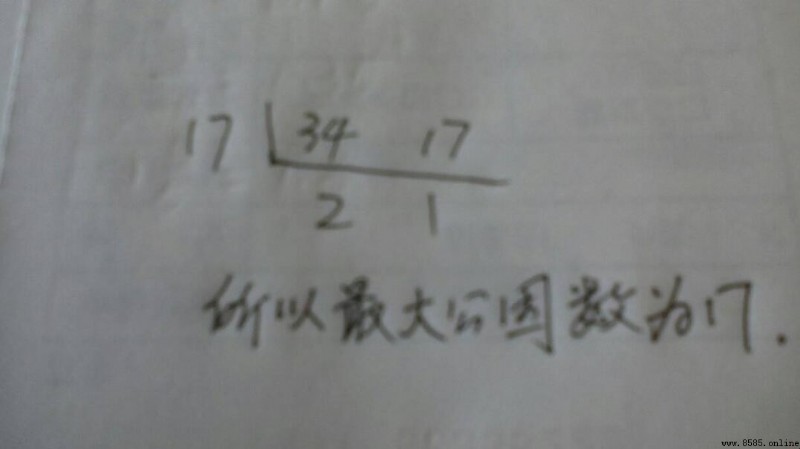 17 34 17
2 1
所以最大公因数为17.
www.8585.online